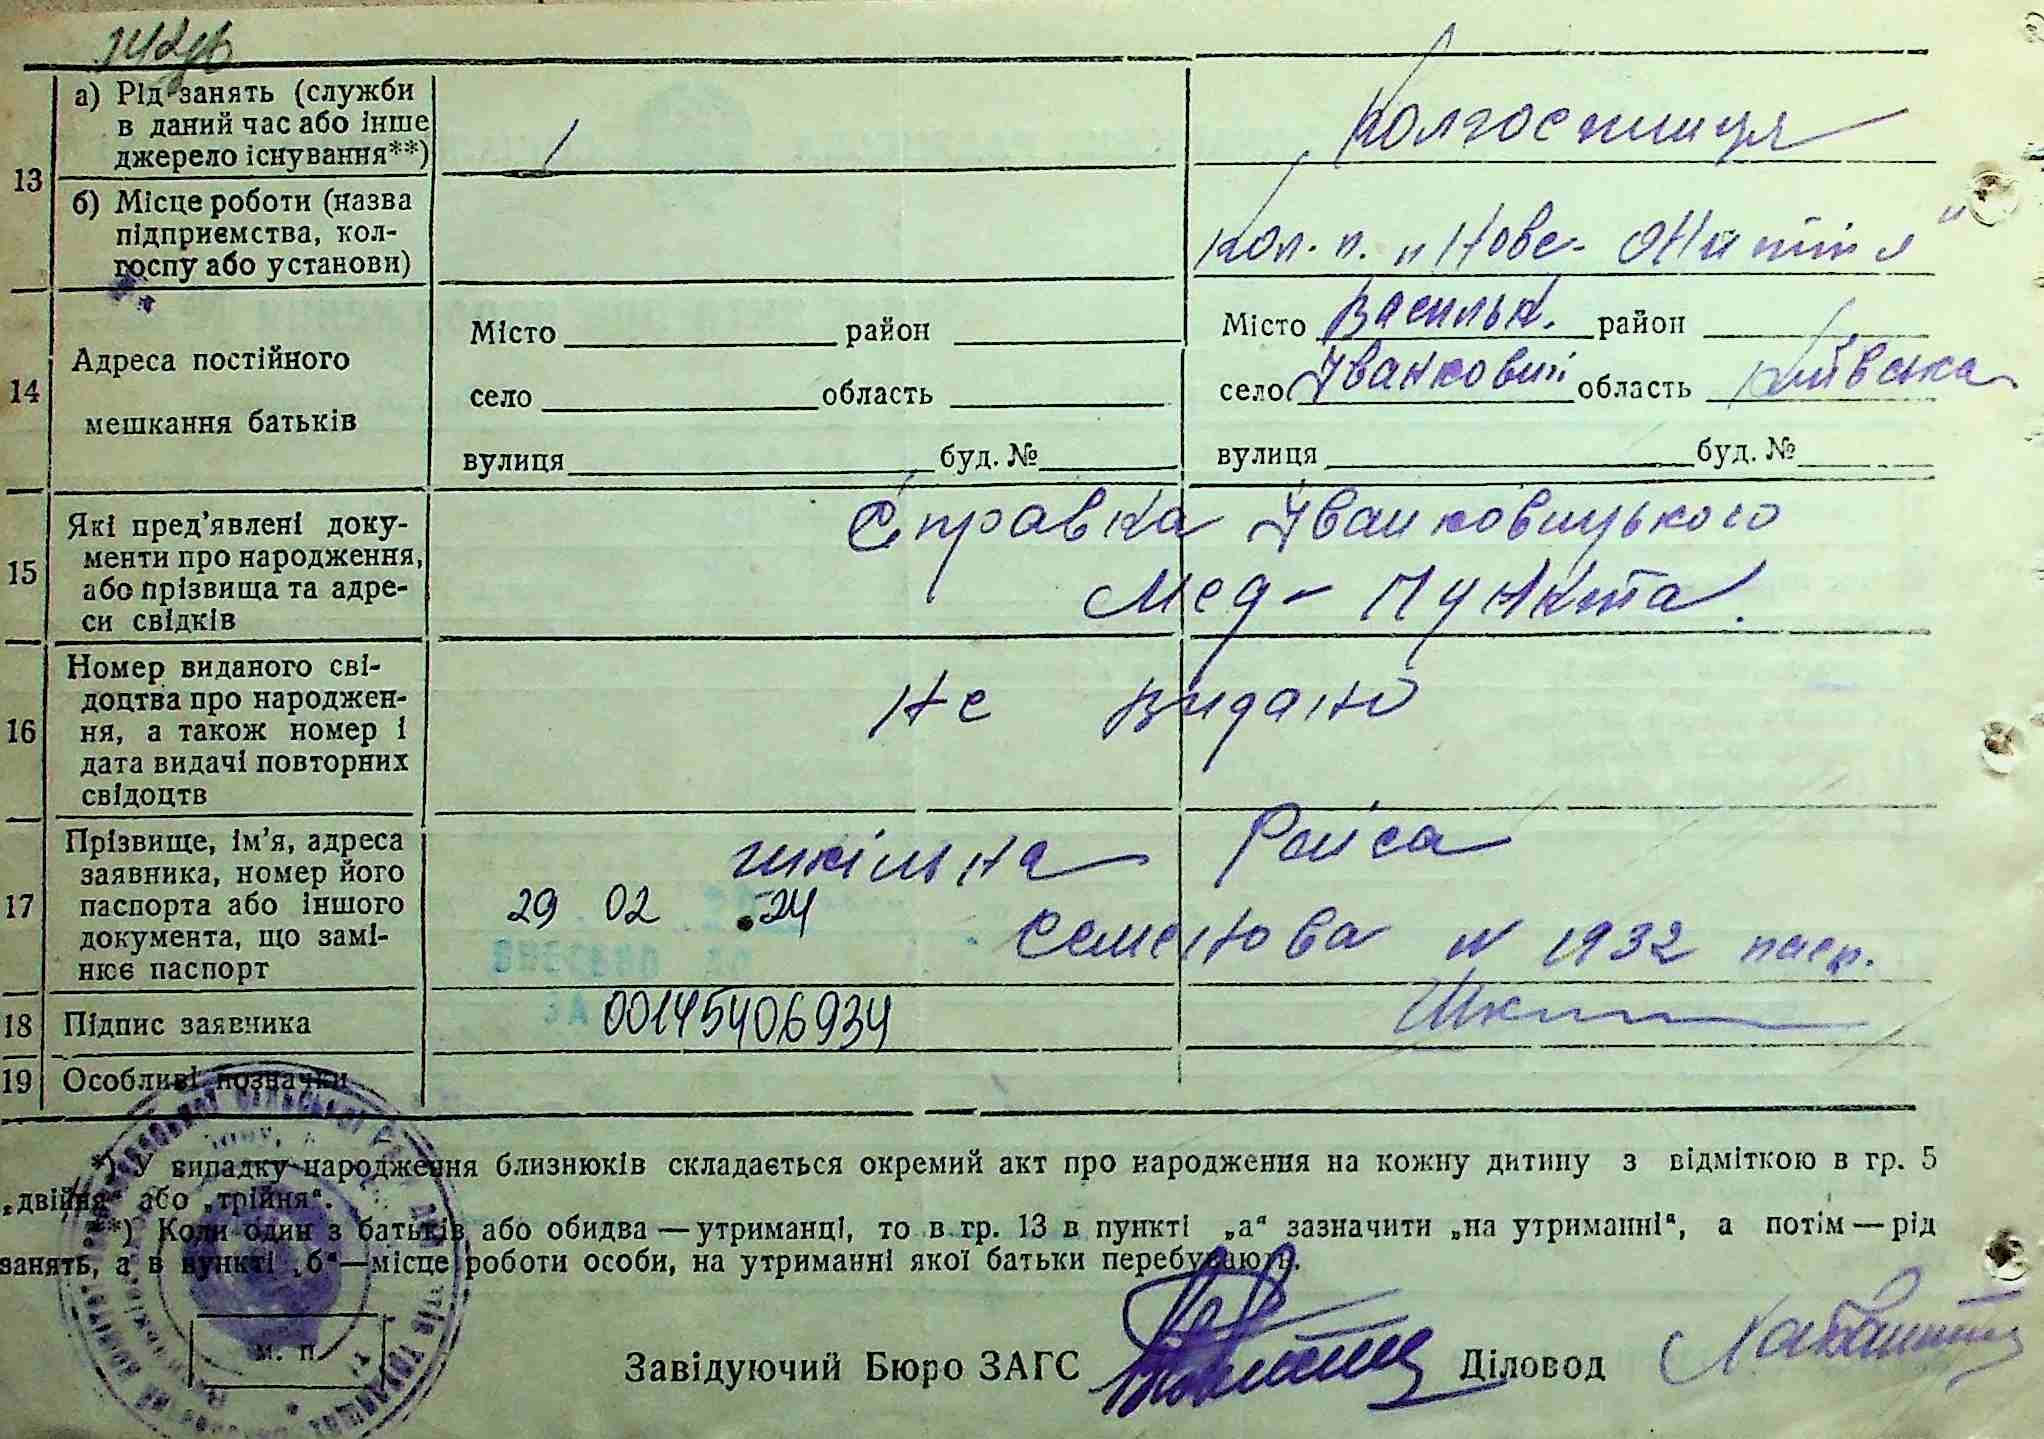 13
а) Рід занять (служби
в даний час або інше
джерело існування**)
Колгоспниця
б) Місце роботи (назва
підприємства, кол-
госпу або установи)
кол. п. „Нове Життя"
14
Адреса постійного
мешкання батьків
Місто район
село область
вулиця буд. №
Місто Васильк. район
село Іванковичі область Київська
вулиця буд. №
15
Які пред'явлені доку-
менти про народження,
або прізвища та адре-
си свідків
Справка Іванковицького
Мед-Пункта.
16
Номер виданого сві-
доцтва про народжен-
ня, а також номер і
дата видачі повторних
свідоцтв
Не видано
17
Прізвище, ім'я, адреса
заявника, номер його
паспорта або іншого
документа, що замі-
нює паспорт
Шкільна Раїса
29 02 .24
Семенова N 1932 пасп.
18
Підпис заявника
00145406934
19
Особливі позначки
*) У випадку народження близнюків складається окремий акт про народження на кожну дитину з відміткою в гр. 5
„двійня“ або „трійня“.
**) Коли один з батьків або обидва — утриманці, то в гр. 13 в пункті „а“ зазначити „на утриманні“, а потім — рід
занять, а в пункті „б“ — місце роботи особи, на утриманні якої батьки перебувають.
М. П.
Завідуючий Бюро ЗАГС Діловод